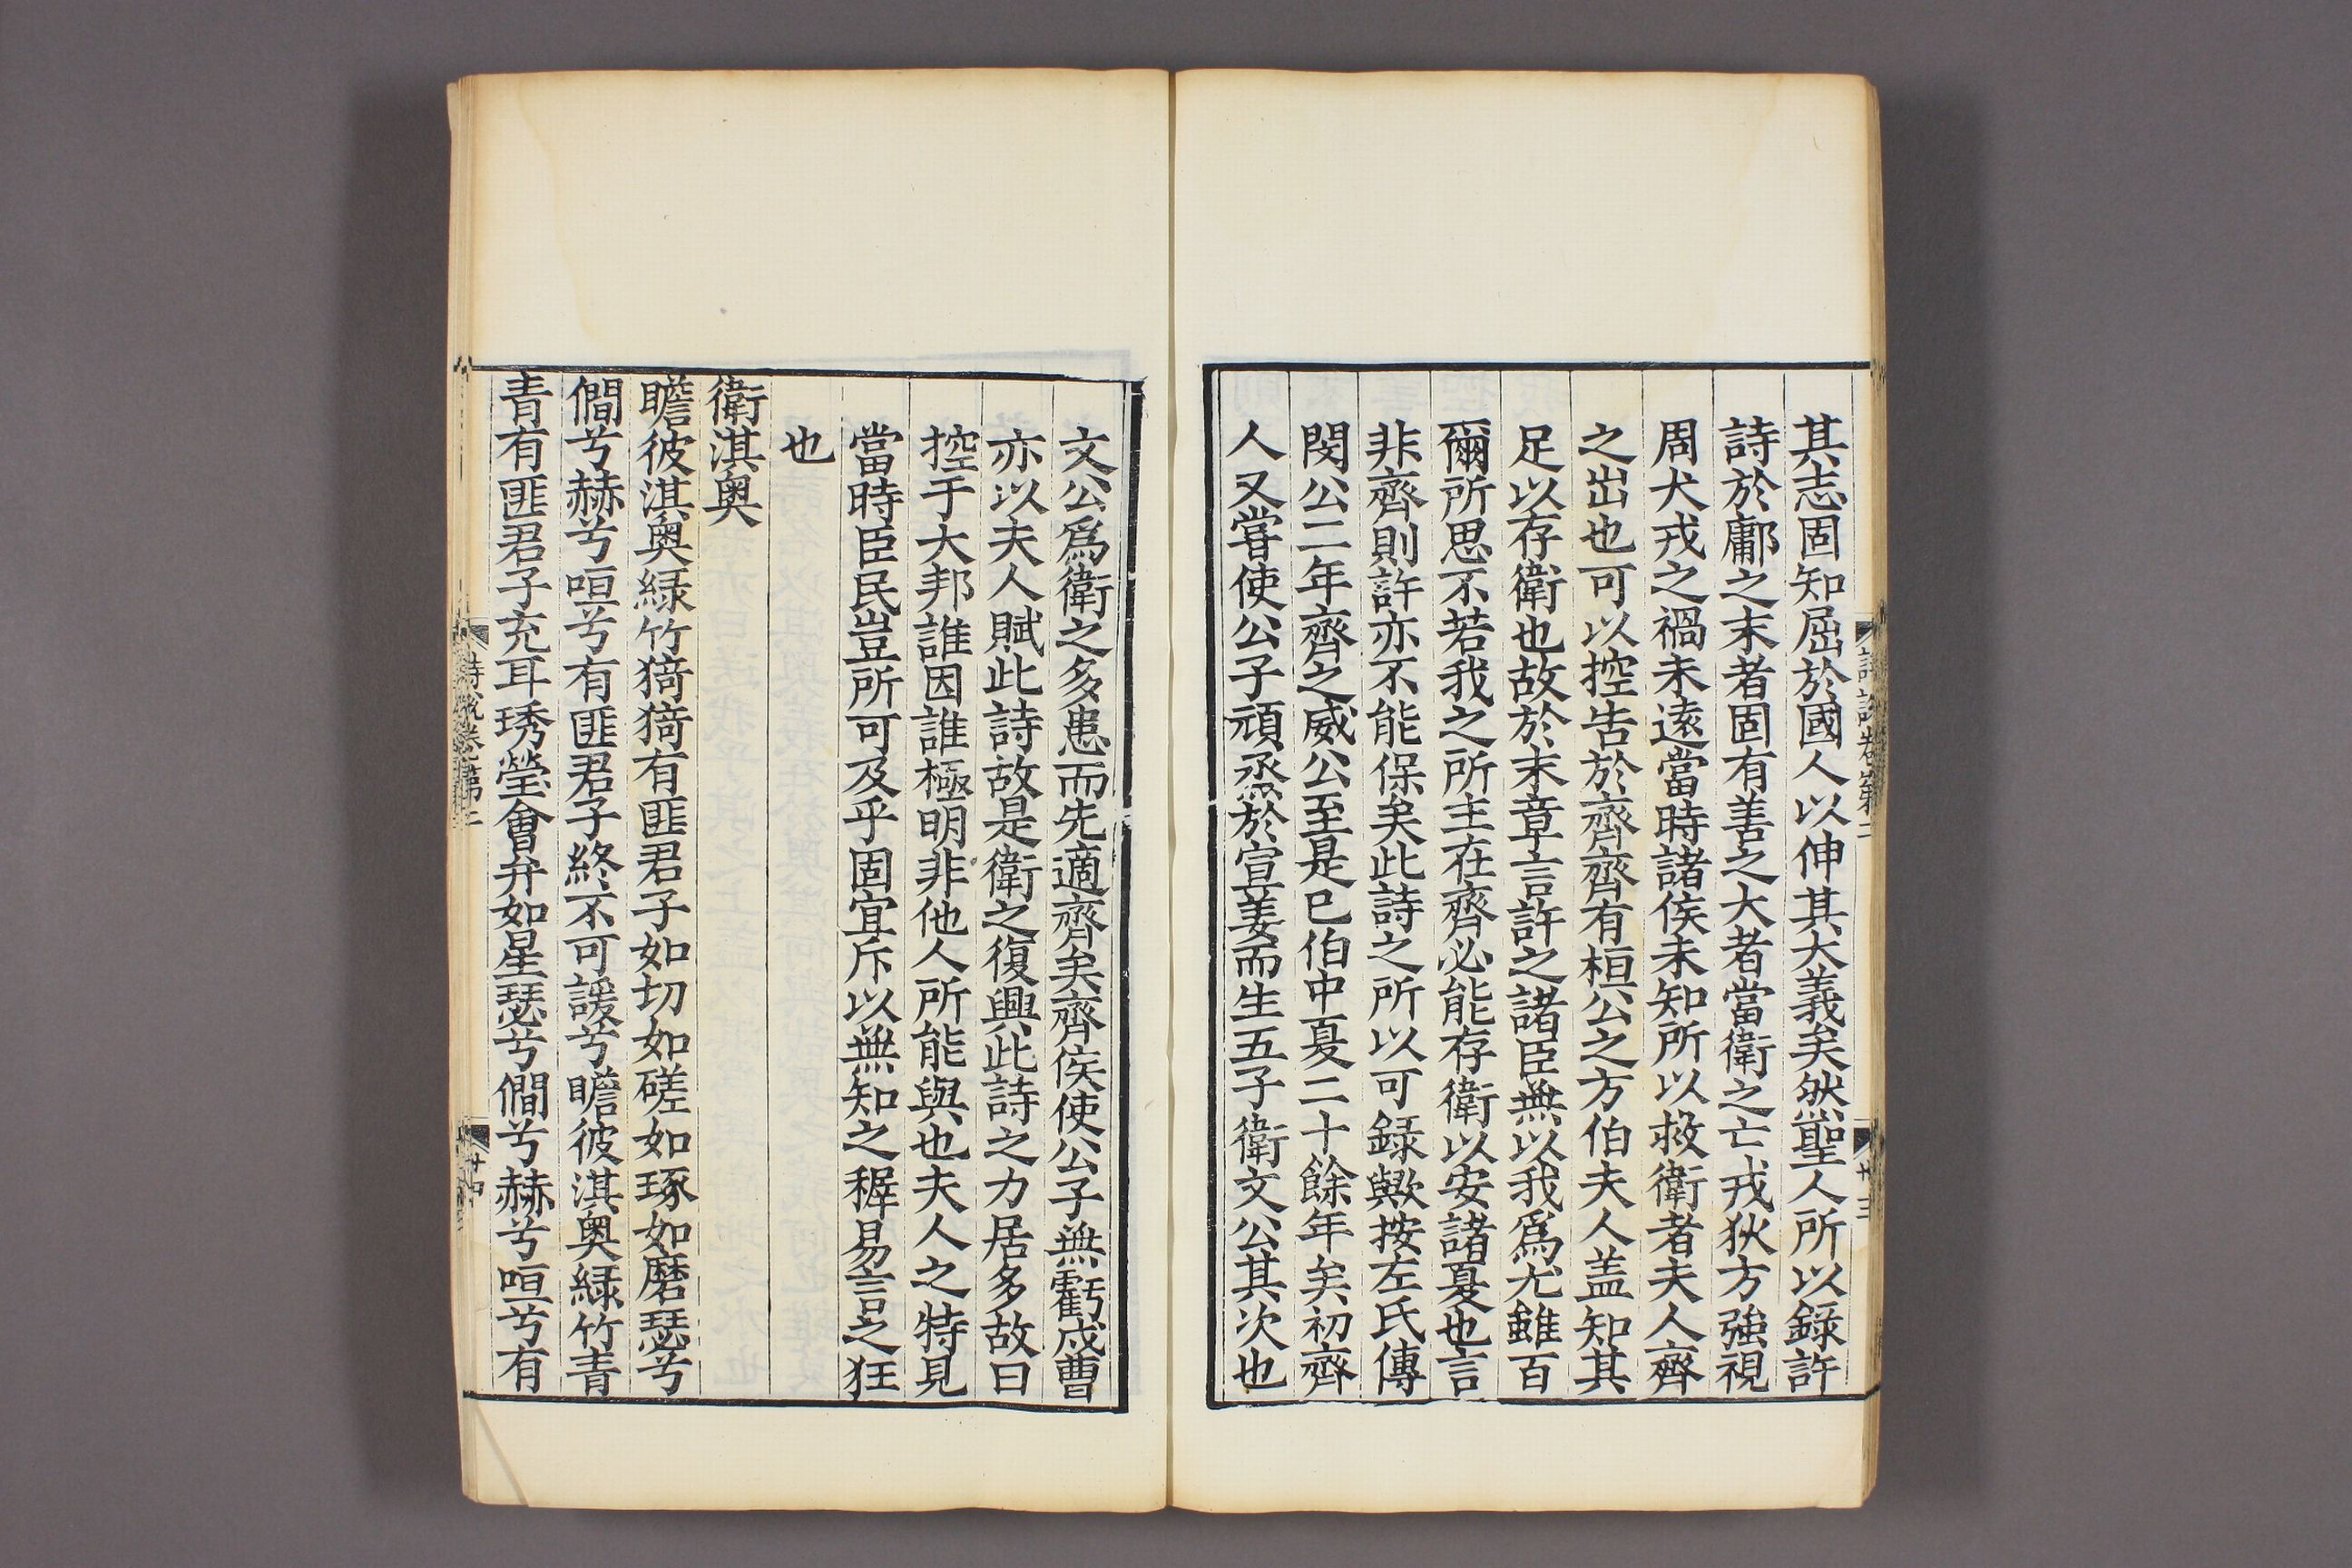 其志固知屈於國人以伸其大義矣然聖人所以錄許
詩於鄘之末者固有善之大者當衛之亡戎狄方強視
周犬戎之禍未遠當時諸侯未知所以救衛者夫人齊
之出也可以控告於齊齊有桓公之方伯夫人盖知其
足以存衛也故於末章言許之諸臣無以我爲尤雖百
爾所思不若我之所主在齊必能存衛以安諸夏也言
非齊則許亦不能保矣此詩之所以可録歟按左氏傳
閔公二年齊之威公至是已伯中夏二十餘年矣初齊
人又嘗使公子頑烝於宣姜而生五子衛文公其次也
文公爲衛之多患而先適齊矣齊侯使公子無虧戍曹
亦以夫人賦此詩故是衛之復興此詩之力居多故曰
控于大邦誰因誰極明非他人所能與也夫人之特見
當時臣民豈所可及乎固宜斥以無知之稺易言之狂
也
衛淇奥
瞻彼淇奥緑竹猗猗有匪君子如切如磋如琢如磨瑟兮
僩兮赫兮咺兮有匪君子終不可諼兮瞻彼淇奥緑竹青
青有匪君子充耳琇瑩會弁如星瑟兮僩兮赫兮咺兮有
詩說卷第二
廿四